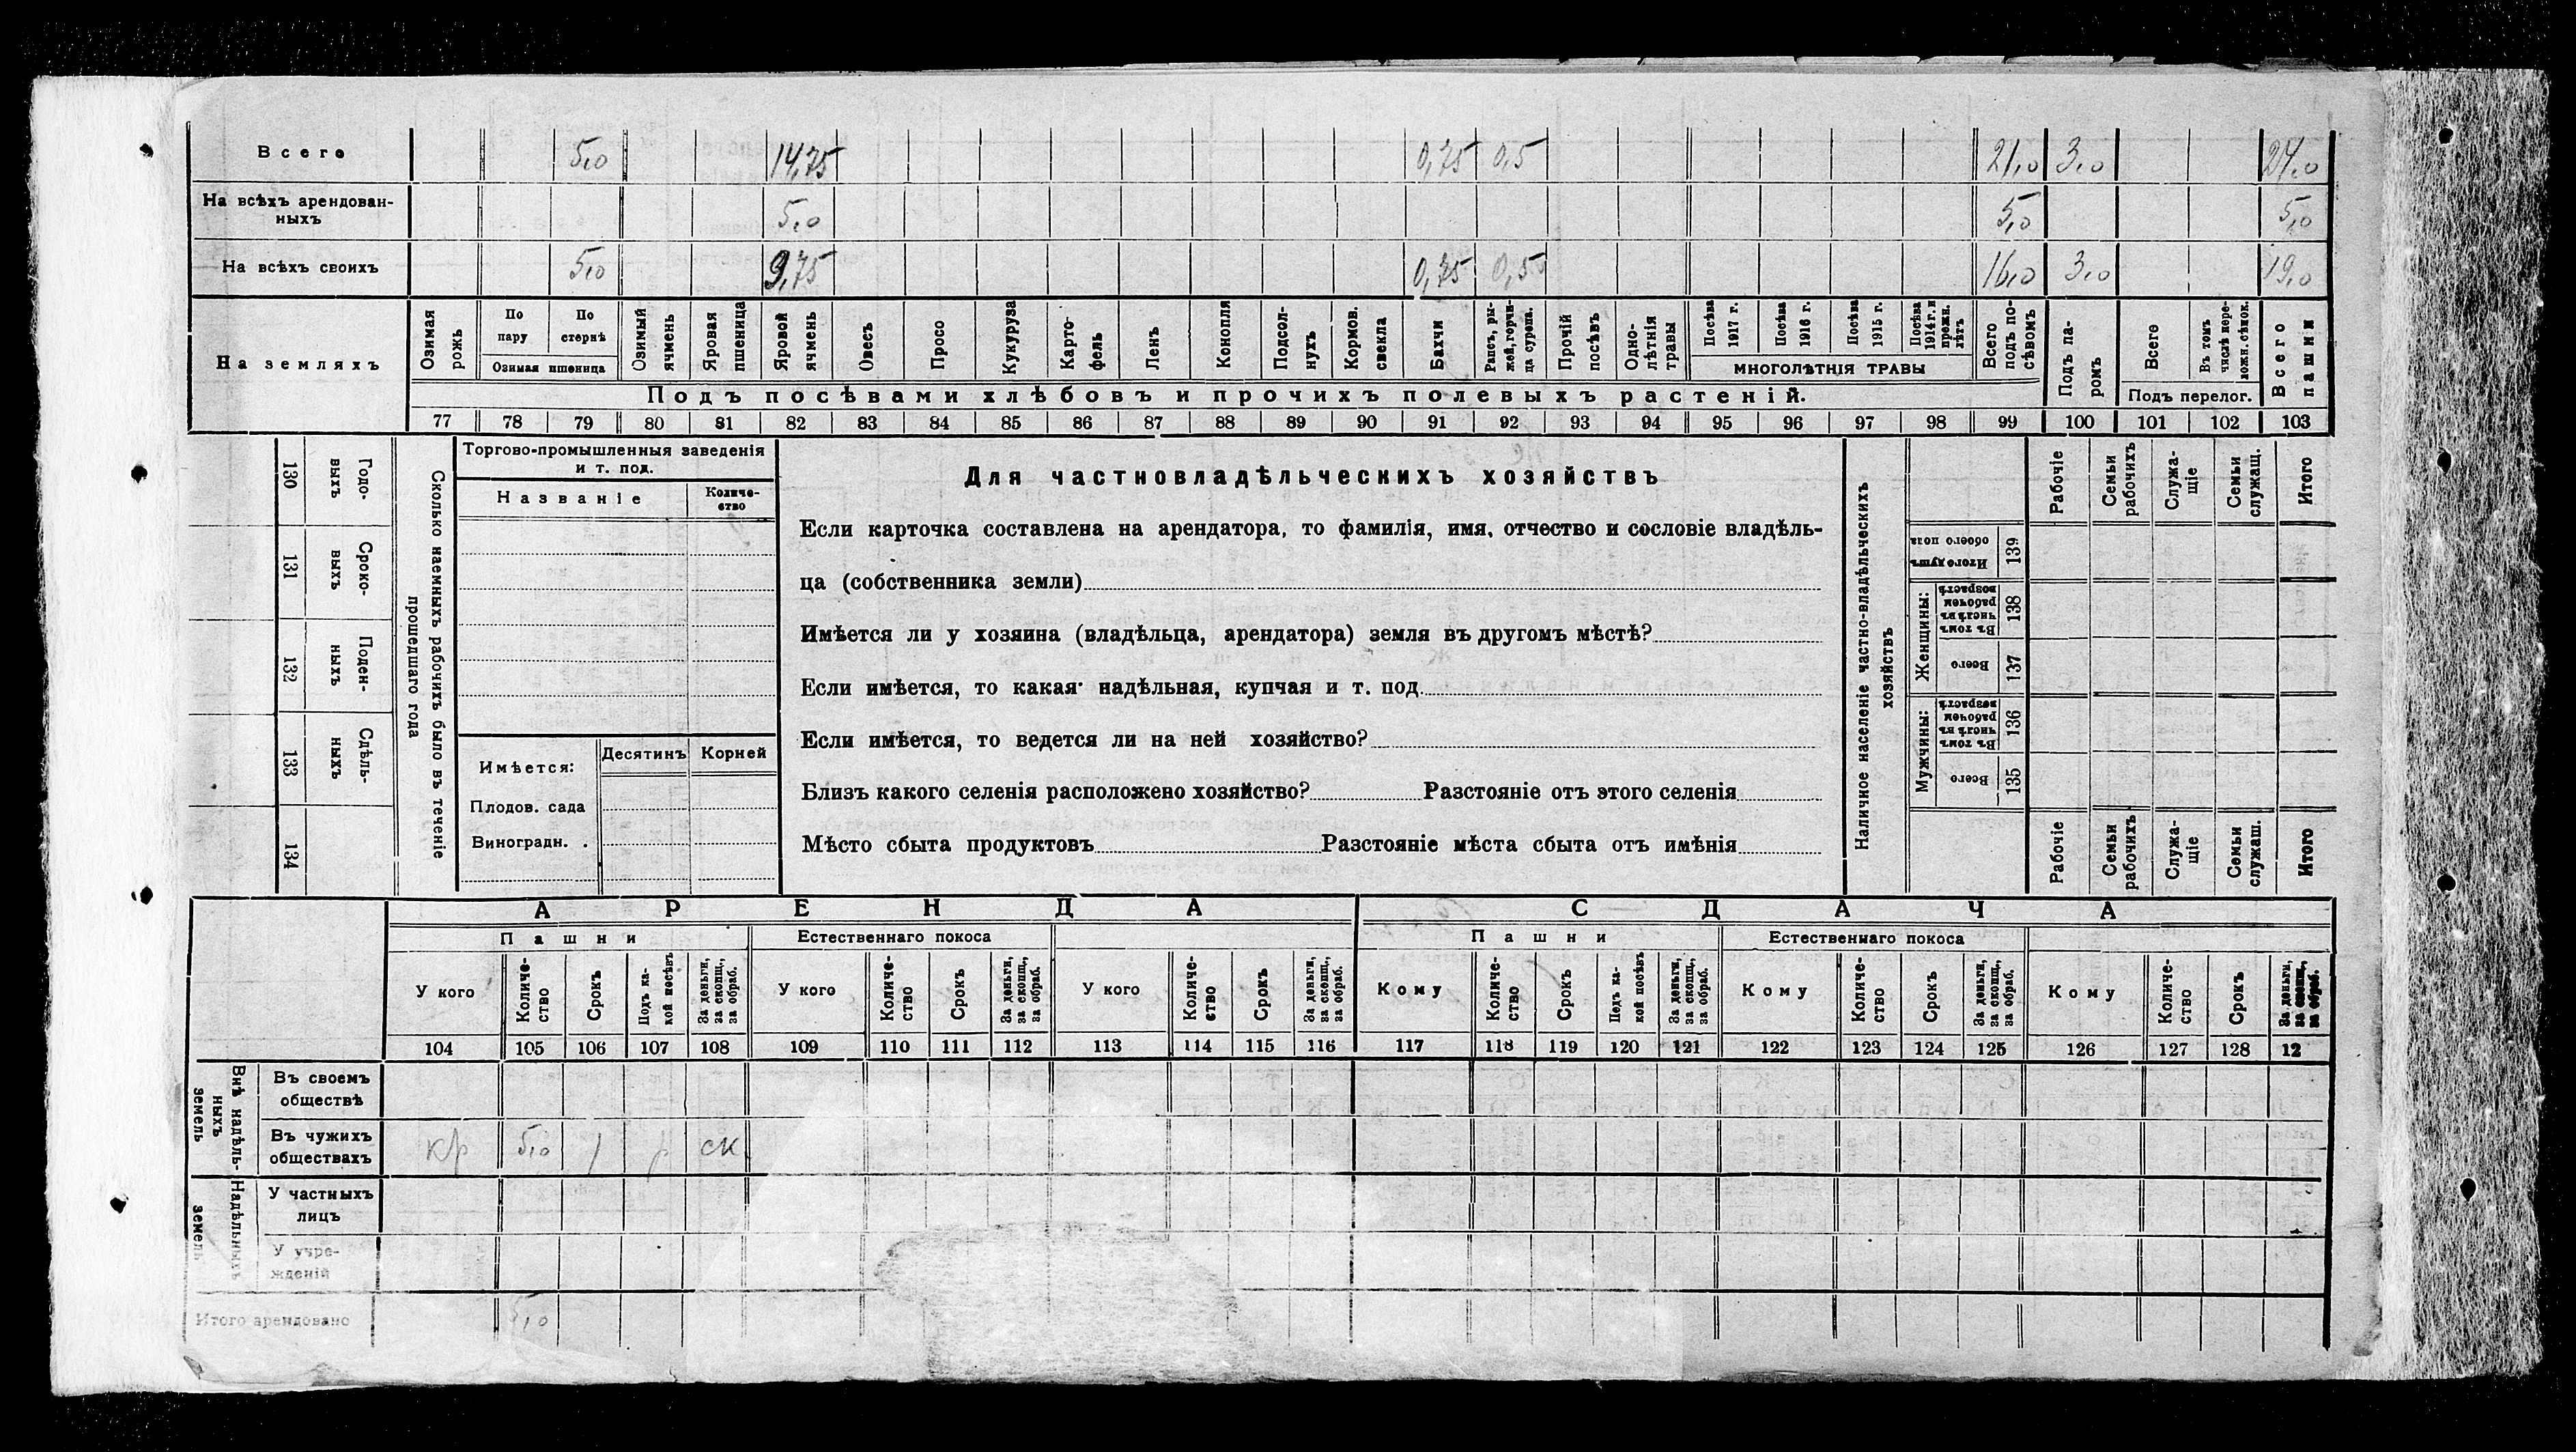 Всего 5,0 14,75 0,75 0,5 21,0 3,0 24,0
На всѣхъ арендован-
ныхъ 5,0 5,0 5,0
На всѣхъ своихъ 5,0 9,75 0,75 0,5 16,0 3,0 19,0
На земляхъ
Озимая рожь
По пару
По стернѣ
Озимая пшеница
Озимый ячмень
Яровая пшеница
Яровой ячмень
Овесъ
Просо
Кукуруза
Карто-
фель
Ленъ
Конопля
Подсол-
нухъ
Кормов.
свекла
Бахчи
Рапсъ, ры-
жей, горчи-
ца сурепа.
Прочій посѣвъ
Одно-
лѣтнія
травы
Посѣва 1917 г.
Посѣва 1916 г.
Посѣва 1915 г.
Посѣва 1914 г. и прежн. лѣтъ
МНОГОЛѢТНІЯ ТРАВЫ
Всего подъ по-
сѣвомъ
Подъ па-
ромъ
Всего
Въ томъ числѣ пере-
ложн. сѣнок.
Подъ перелог.
Всего пашни
Подъ посѣвами хлѣбовъ и прочихъ полевыхъ растеній.
77 78 79 80 81 82 83 84 85 86 87 88 89 90 91 92 93 94 95 96 97 98 99 100 101 102 103
130 Годо-
выхъ
131 Сроко-
выхъ
132 Поден-
ныхъ
133 Сдѣль-
ныхъ
134
Сколько наемныхъ рабочихъ было въ теченіе
прошедшаго года
Торгово-промышленныя заведенія
и т. под.
Названіе
Количе-
ство
Имѣется:
Десятинъ Корней
Плодов. сада
Виноградн. .
Для частновладѣльческихъ хозяйствъ
Если карточка составлена на арендатора, то фамилія, имя, отчество и сословіе владѣль-
ца (собственника земли)
Имѣется ли у хозяина (владѣльца, арендатора) земля въ другомъ мѣстѣ?
Если имѣется, то какая· надѣльная, купчая и т. под.
Если имѣется, то ведется ли на ней хозяйство?
Близъ какого селенія расположено хозяйство? Разстояніе отъ этого селенія
Мѣсто сбыта продуктовъ Разстояніе мѣста сбыта отъ имѣнія
Наличное населеніе частно-владѣльческихъ
хозяйствъ
Рабочіе
Семьи рабочихъ
Служа-
щіе
Семьи служащ.
Итого
Итого душъ обоего пола 139
Женщины:
Въ томъ числѣ въ рабочем возрастѣ 138
Всего 137
Мужчины:
Въ томъ числѣ въ рабочем возрастѣ 136
Всего 135
Рабочіе
Семьи рабочихъ
Служа-
щіе
Семьи служащ.
Итого
АРЕНДА СДАЧА
Пашни Естественнаго покоса Пашни Естественнаго покоса
У кого
Количе-
ство
Срокъ
Подъ ка-
кой посѣвъ
За деньги,
за скопщ.,
за обраб.
У кого
Количе-
ство
Срокъ
За деньги,
за скопщ.,
за обраб.
У кого
Количе-
ство
Срокъ
За деньги,
за скопщ.,
за обраб.
Кому
Количе-
ство
Срокъ
Подъ ка-
кой посѣвъ
За деньги,
за скопщ.,
за обраб.
Кому
Количе-
ство
Срокъ
За деньги,
за скопщ.,
за обраб.
Кому
Количе-
ство
Срокъ
За деньги,
за скопщ.,
за обраб.
104 105 106 107 108 109 110 111 112 113 114 115 116 117 118 119 120 121 122 123 124 125 126 127 128 12
Внѣ надѣль-
ныхъ
земель
Въ своемъ
обществѣ
Въ чужихъ
обществахъ кр 5,0 1 р ск
Надѣльныхъ
земель
У частныхъ
лицъ
У учре-
жденій
Итого арендовано 5,0